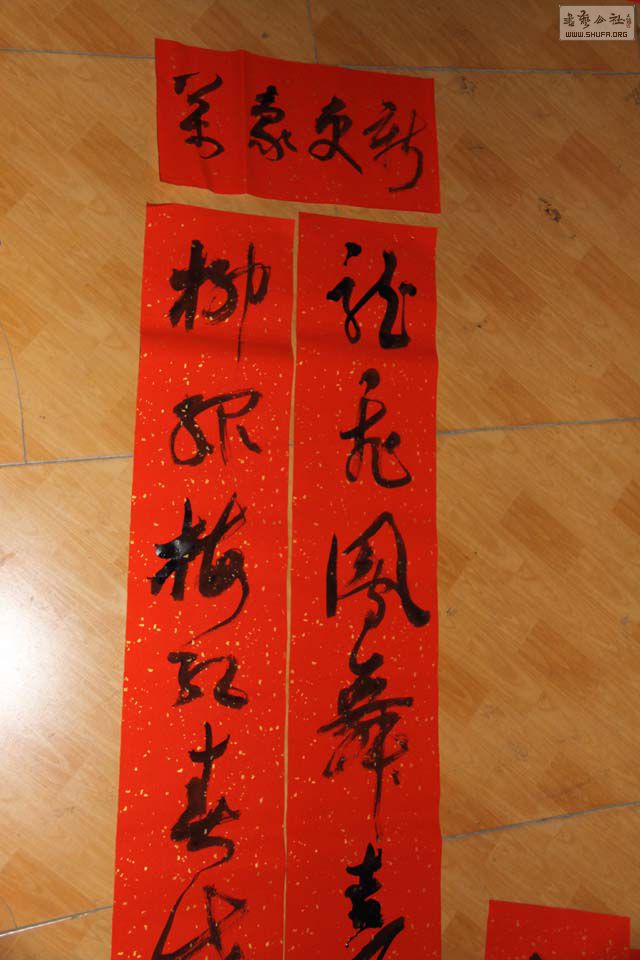 萬象更新
龍飛鳳舞
柳綠梅紅春
書艺公社
WWW.SHUFA.ORG